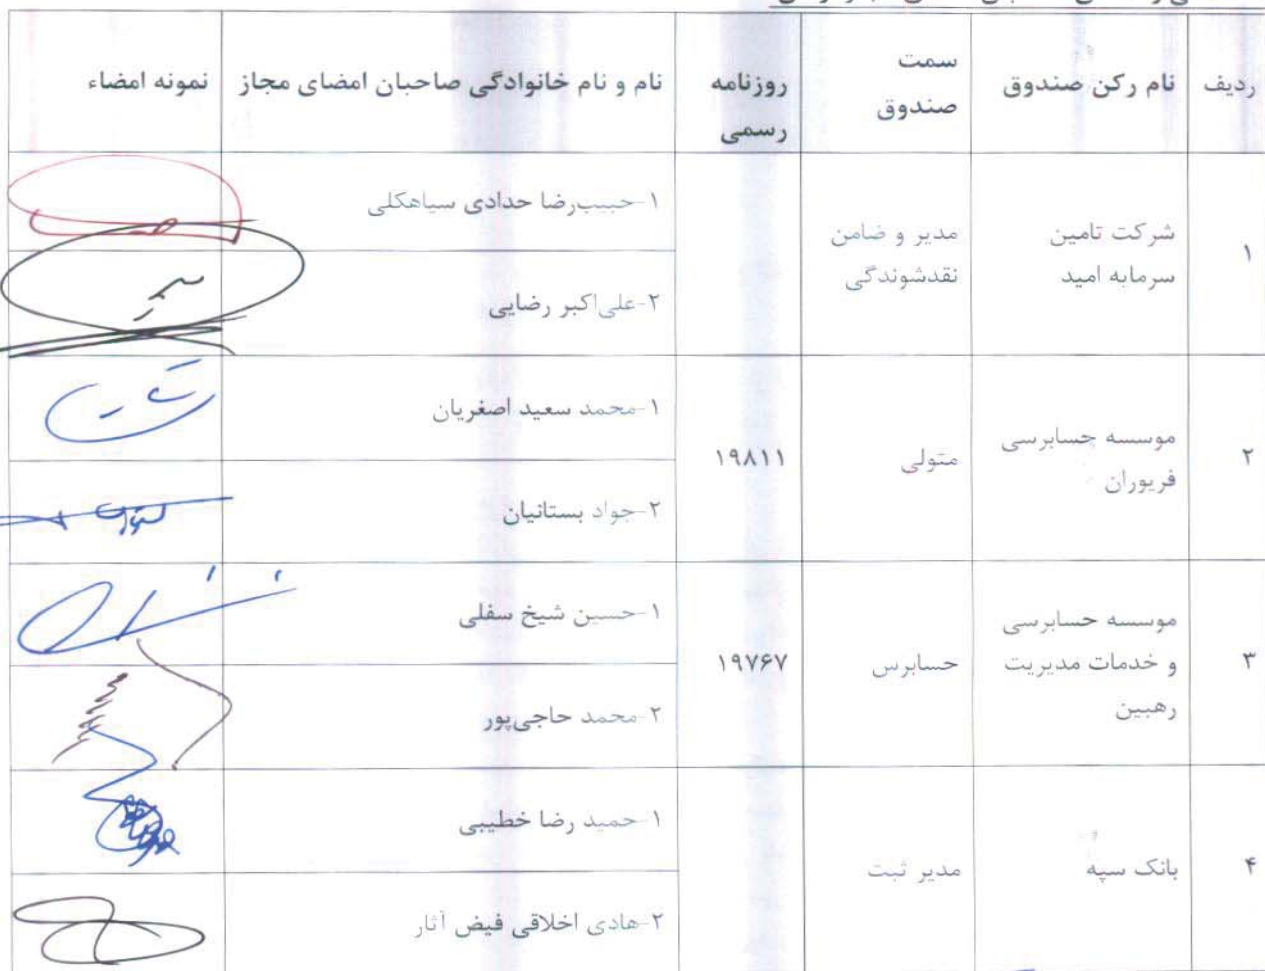 ردیف
نام رکن صندوق
سمت
صندوق
روزنامه
رسمی
نام و نام خانوادگی صاحبان امضای مجاز
نمونه امضاء
۱
شرکت تامین
سرمایه امید
مدیر و ضامن
نقدشوندگی
۱-حبیب‌رضا حدادی سیاهکلی
۲-علی‌اکبر رضایی
۲
موسسه حسابرسی
فریوران
متولی
۱۹۸۱۱
۱-محمد سعید اصغریان
۲-جواد بستانیان
۳
موسسه حسابرسی
و خدمات مدیریت
رهبین
حسابرس
۱۹۷۶۷
۱-حسین شیخ سفلی
۲-محمد حاجی‌پور
۴
بانک سپه
مدیر ثبت
۱-حمید رضا خطیبی
۲-هادی اخلاقی فیض آثار